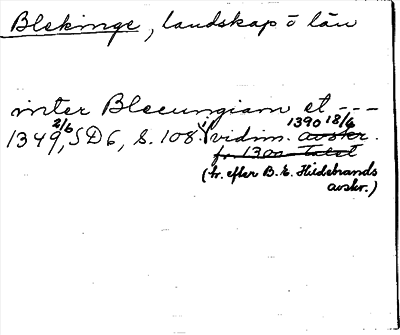 Blekinge, landskap o län
inter Blecungiam et ---
1349 2/6, SD 6, S. 108. i vidim. 1390 18/6 avskr.
fr. 1300-talet
(tr. efter B. E. Hildebrands
avskr.)